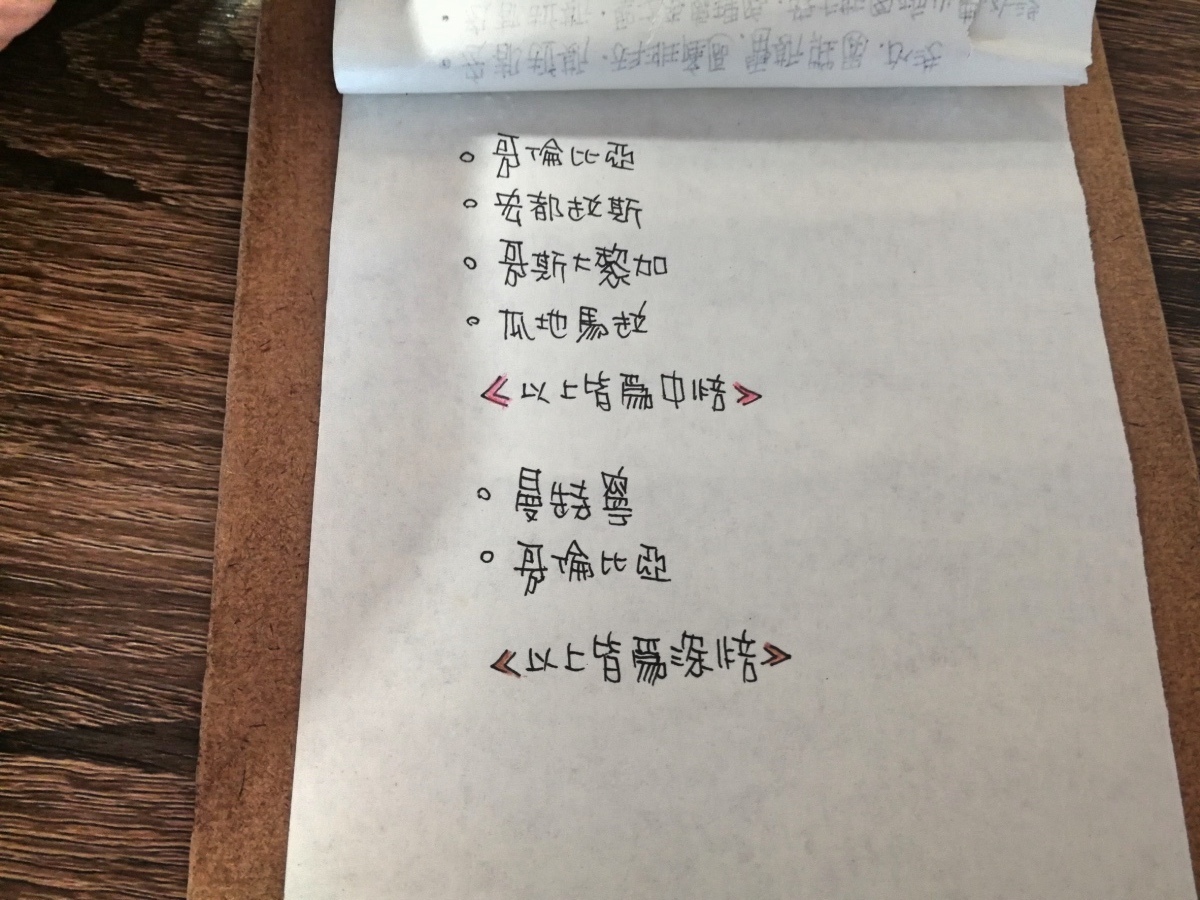 。哥倫比亞
。宏都拉斯
。哥斯大黎加
。瓜地馬拉
《以上皆為中焙》
。曼特寧
。哥倫比亞
《以上皆為深焙》